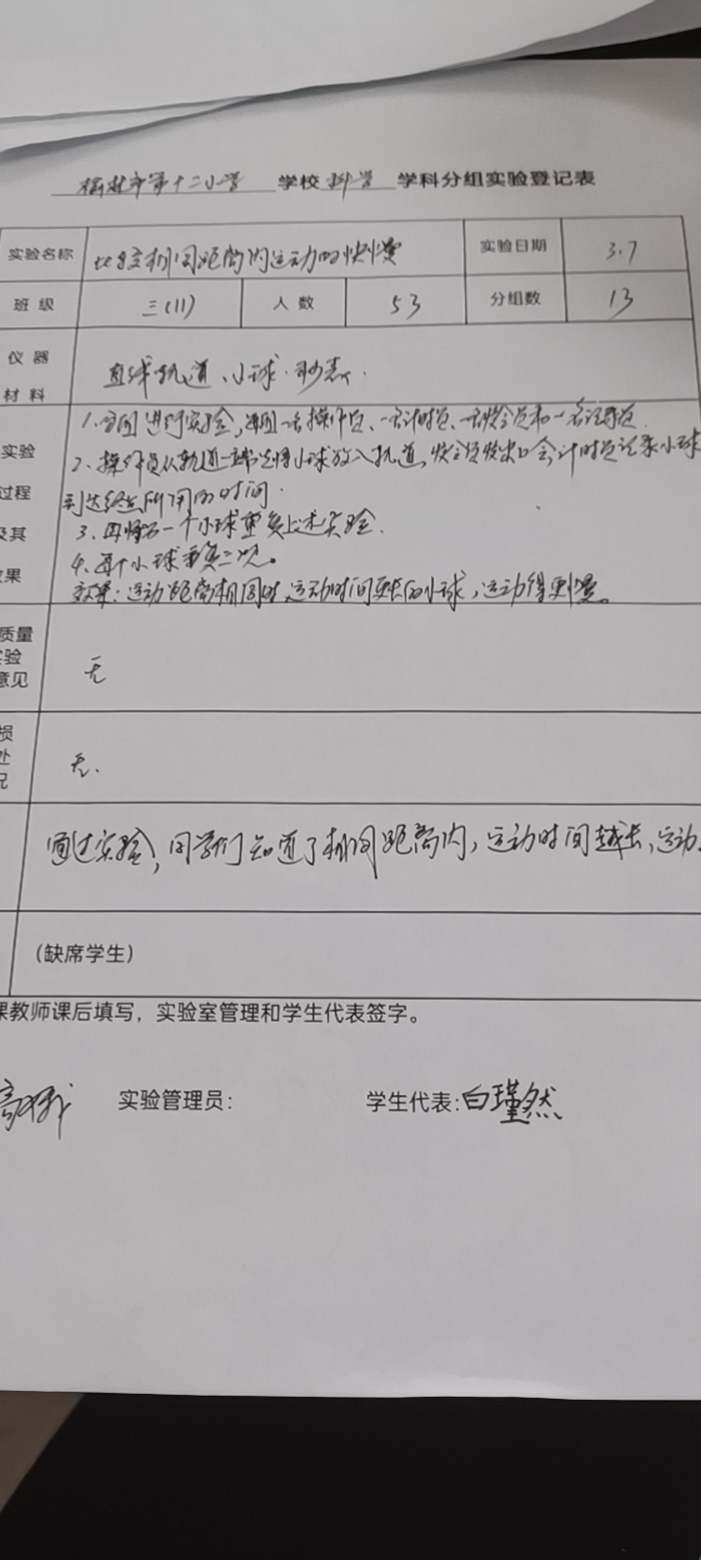 榆林市第十二小学 学校 科学 学科分组实验登记表
实验名称 比较相同距离内运动的快慢 实验日期 3.7
班级 三(11) 人数 53 分组数 13
仪器
材料
直线轨道、小球、秒表.
1.分组进行实验,每组一名操作员、一名计时员、一名发令员和一名记录员.
实验
2、操作员从轨道一端先将小球放入轨道,发令员发出口令计时员记录小球
过程
到达终点所用的时间.
及其
3、再将另一个小球重复上述实验.
4、每个小球重复三次。
效果
效果:运动距离相同时,运动时间更长的小球,运动得更慢。
质量
实验
意见
无
损
处
况
无.
通过实验,同学们知道了相同距离内,运动时间越长,运动
(缺席学生)
课教师课后填写,实验室管理和学生代表签字。
实验管理员: 学生代表:白瑾然